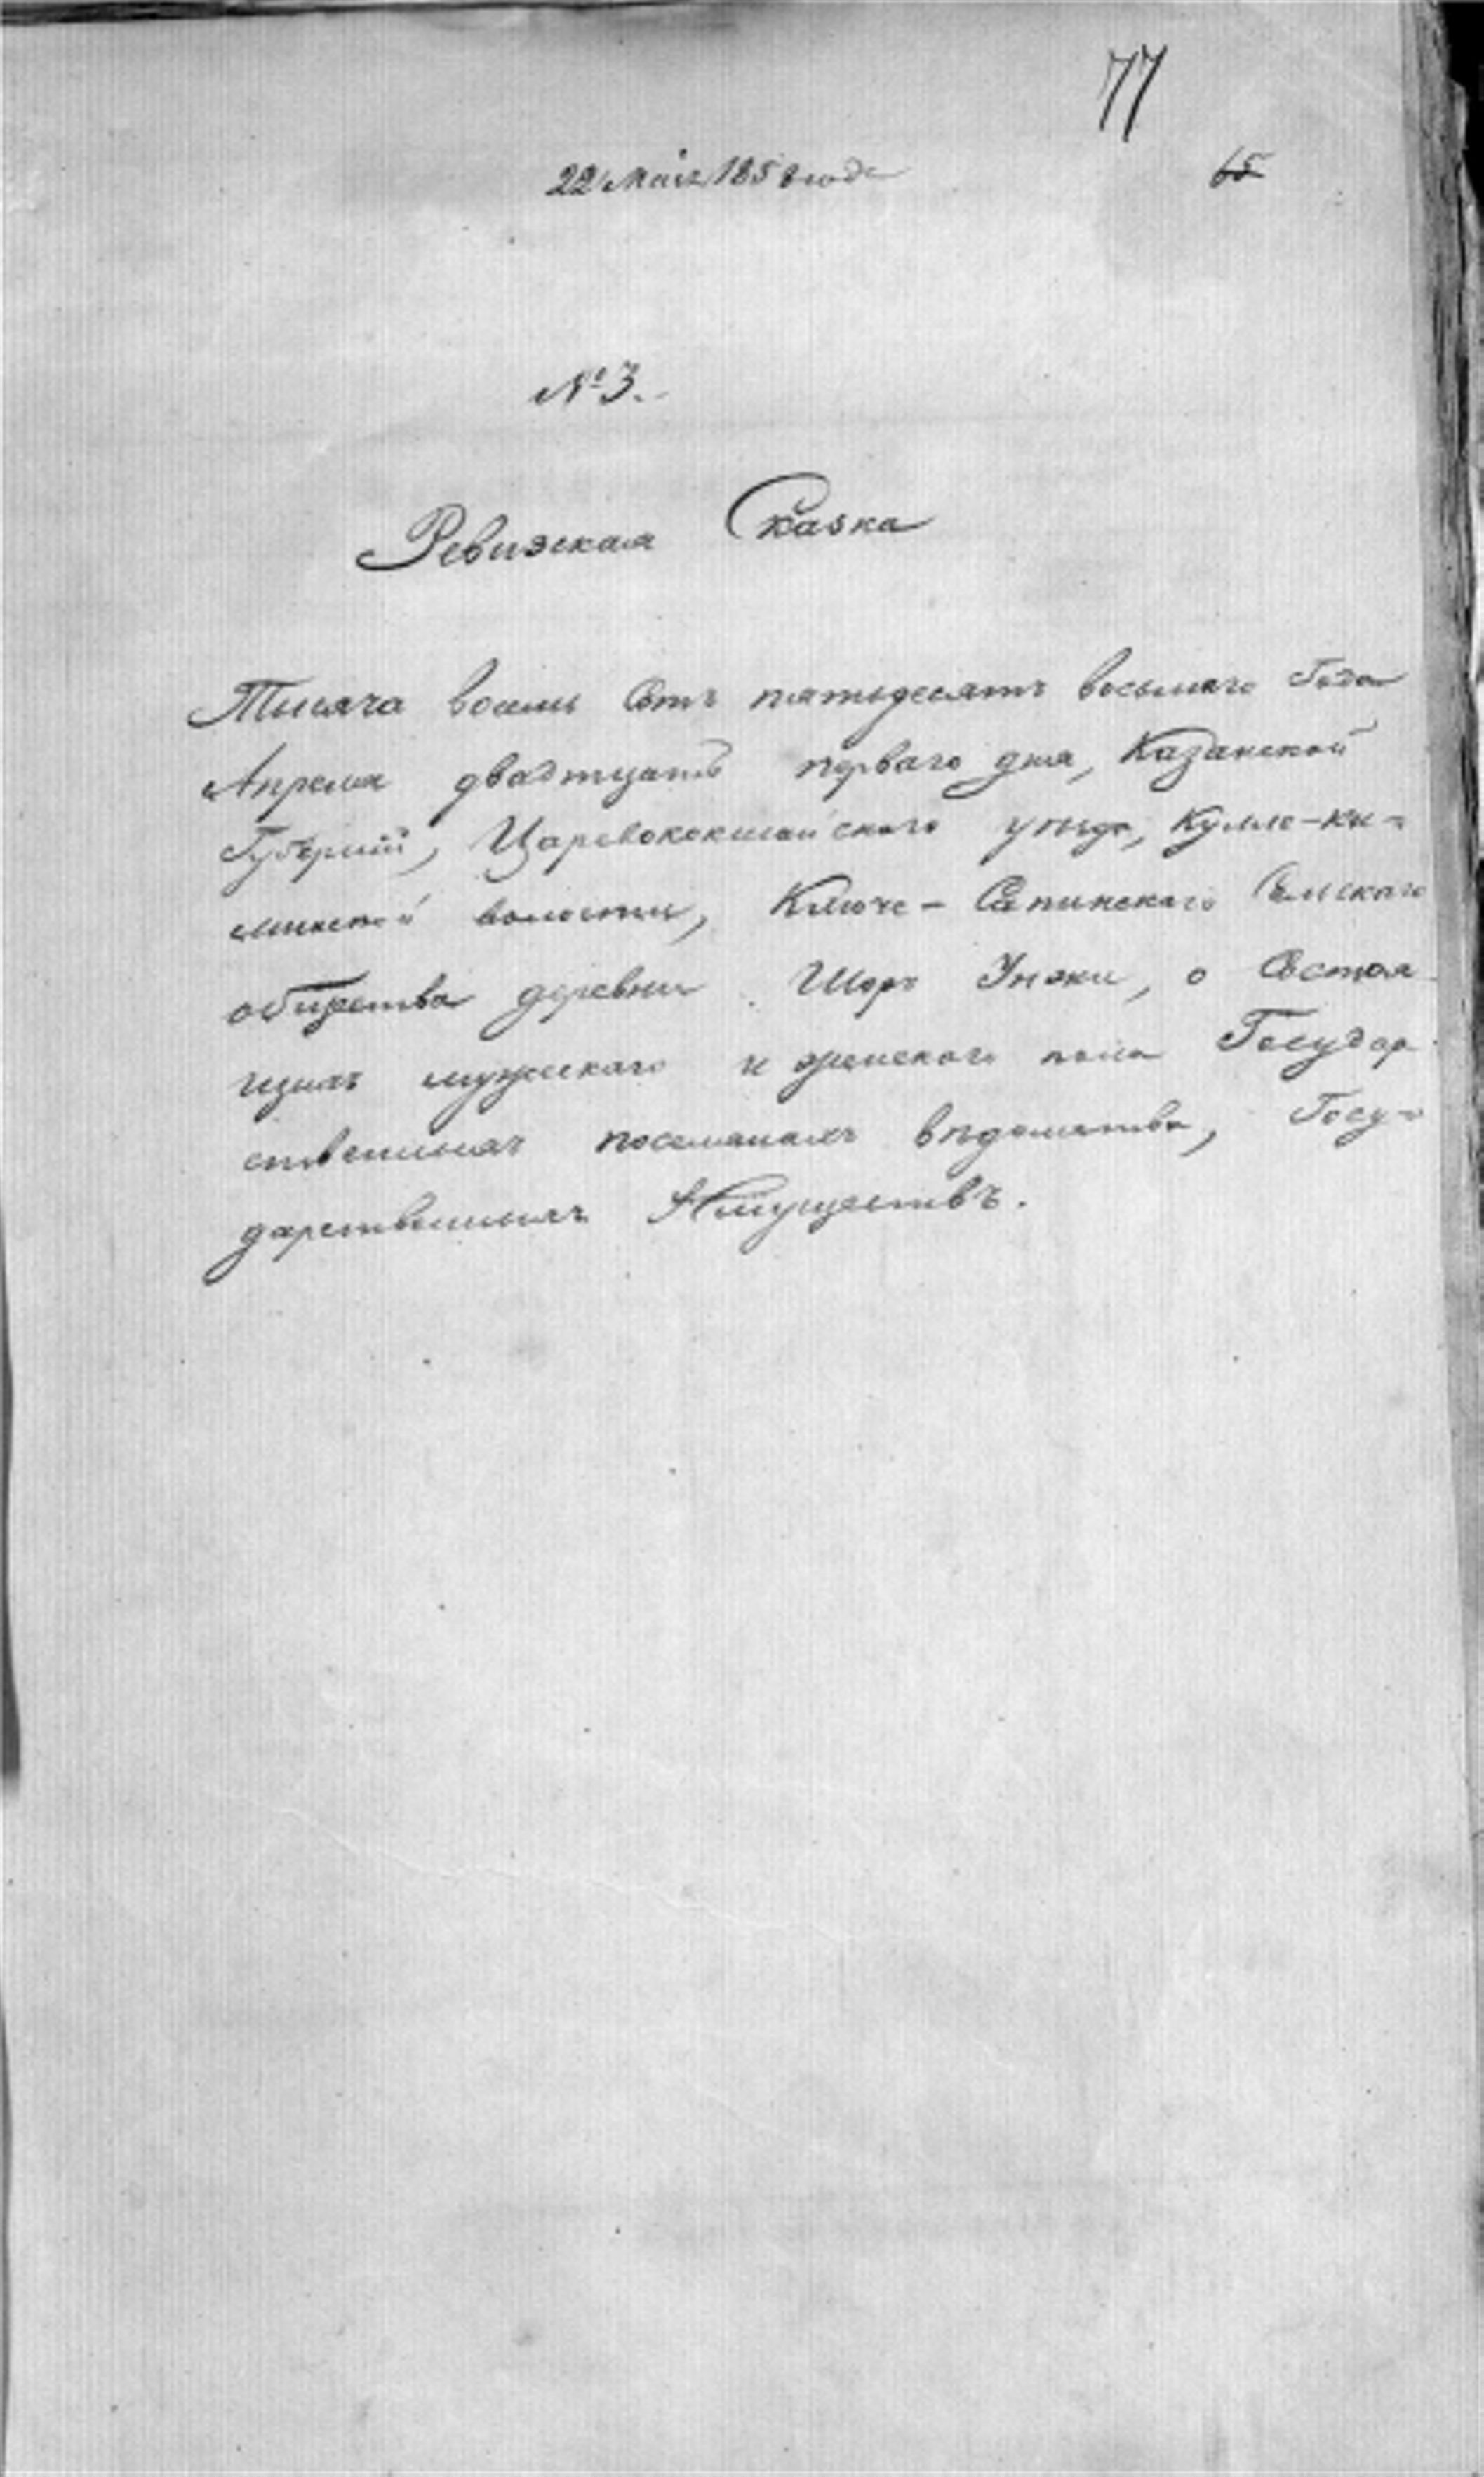 77
22 Мая 1858 года
65
№ 3.
Ревизская Сказка
Тысяча восемь Сотъ пятьдесятъ восьмаго Года
Апреля двадтцать перваго дня, Казанской
Губерніи, Царевококшайскаго уѣзда, Кулле-ки-
минской волости, Ключе-Сапинскаго Сельскаго
общества деревни Шоръ Унжи, о Состоя
щихъ мужскаго и женскаго пола Государ
ственныхъ поселянахъ вѣдомства, Госу-
дарственныхъ Имуществъ.